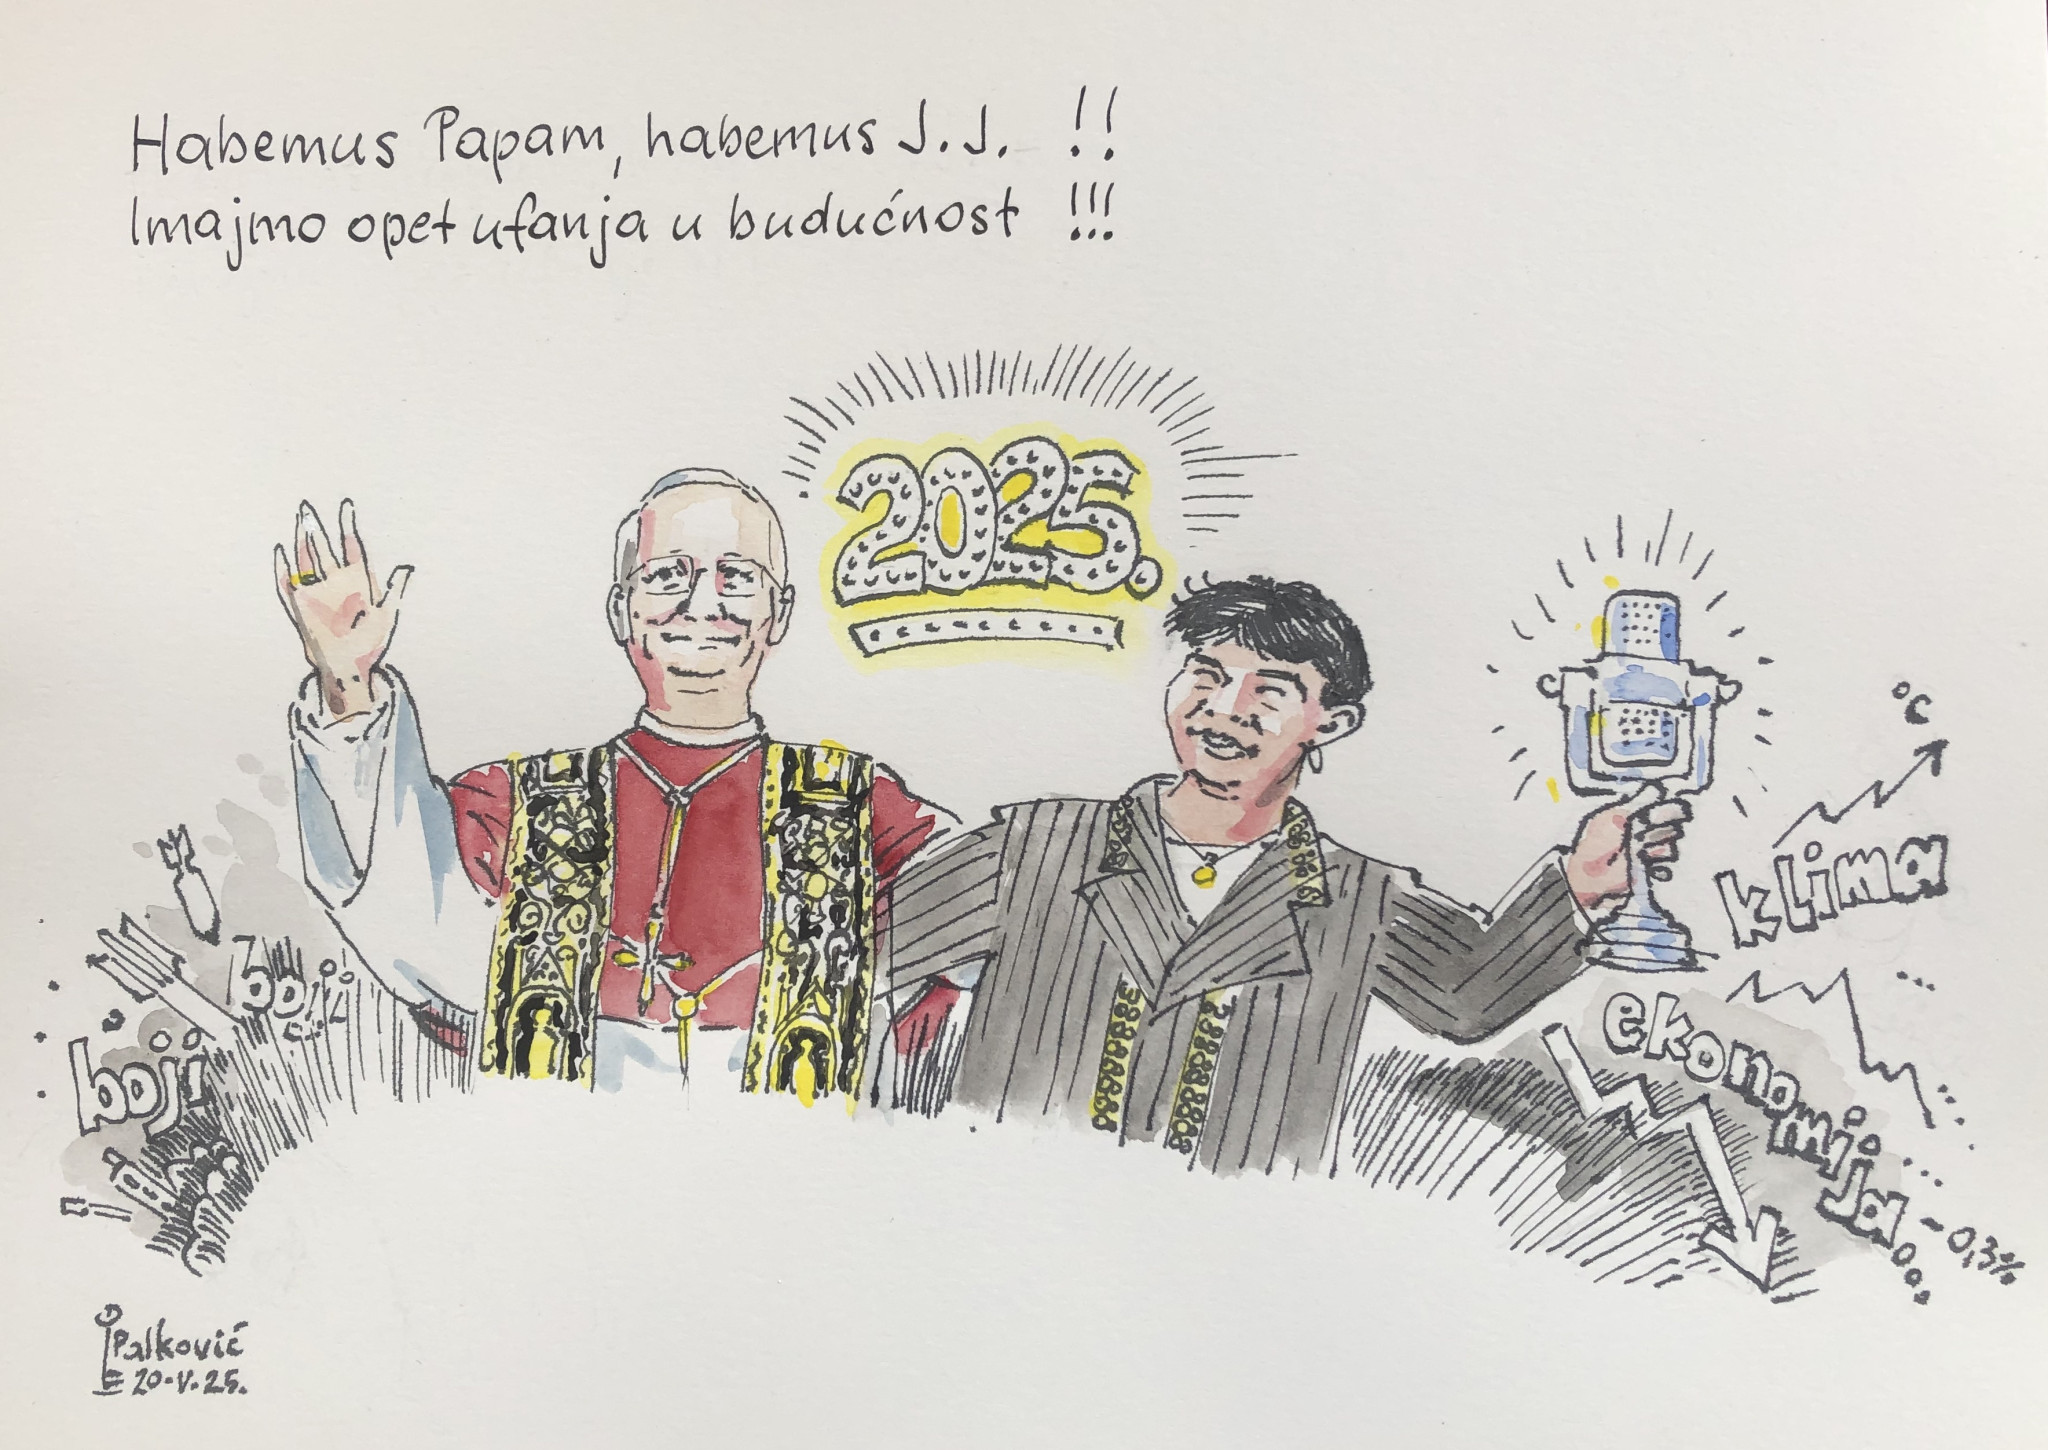 Habemus Papam, habemus J.J. !!
Imajmo opet ufanja u budućnost !!!
2025.
°C
klima
boji
ekonomija... -0,3%
Palković
20.V.25.